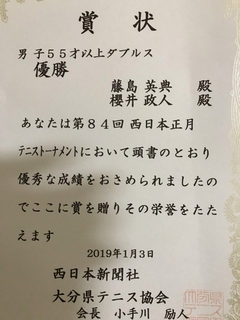 賞状
男子５５才以上ダブルス
優勝
藤島 英典 殿
櫻井 政人 殿
あなたは第８４回 西日本正月
ﾃﾆｽﾄｰﾅﾒﾝﾄにおいて頭書のとおり
優秀な成績をおさめられましたの
でここに賞を贈りその栄誉をたた
えます
2019年1月3日
西日本新聞社
大分県テニス協会
会長 小手川 励人